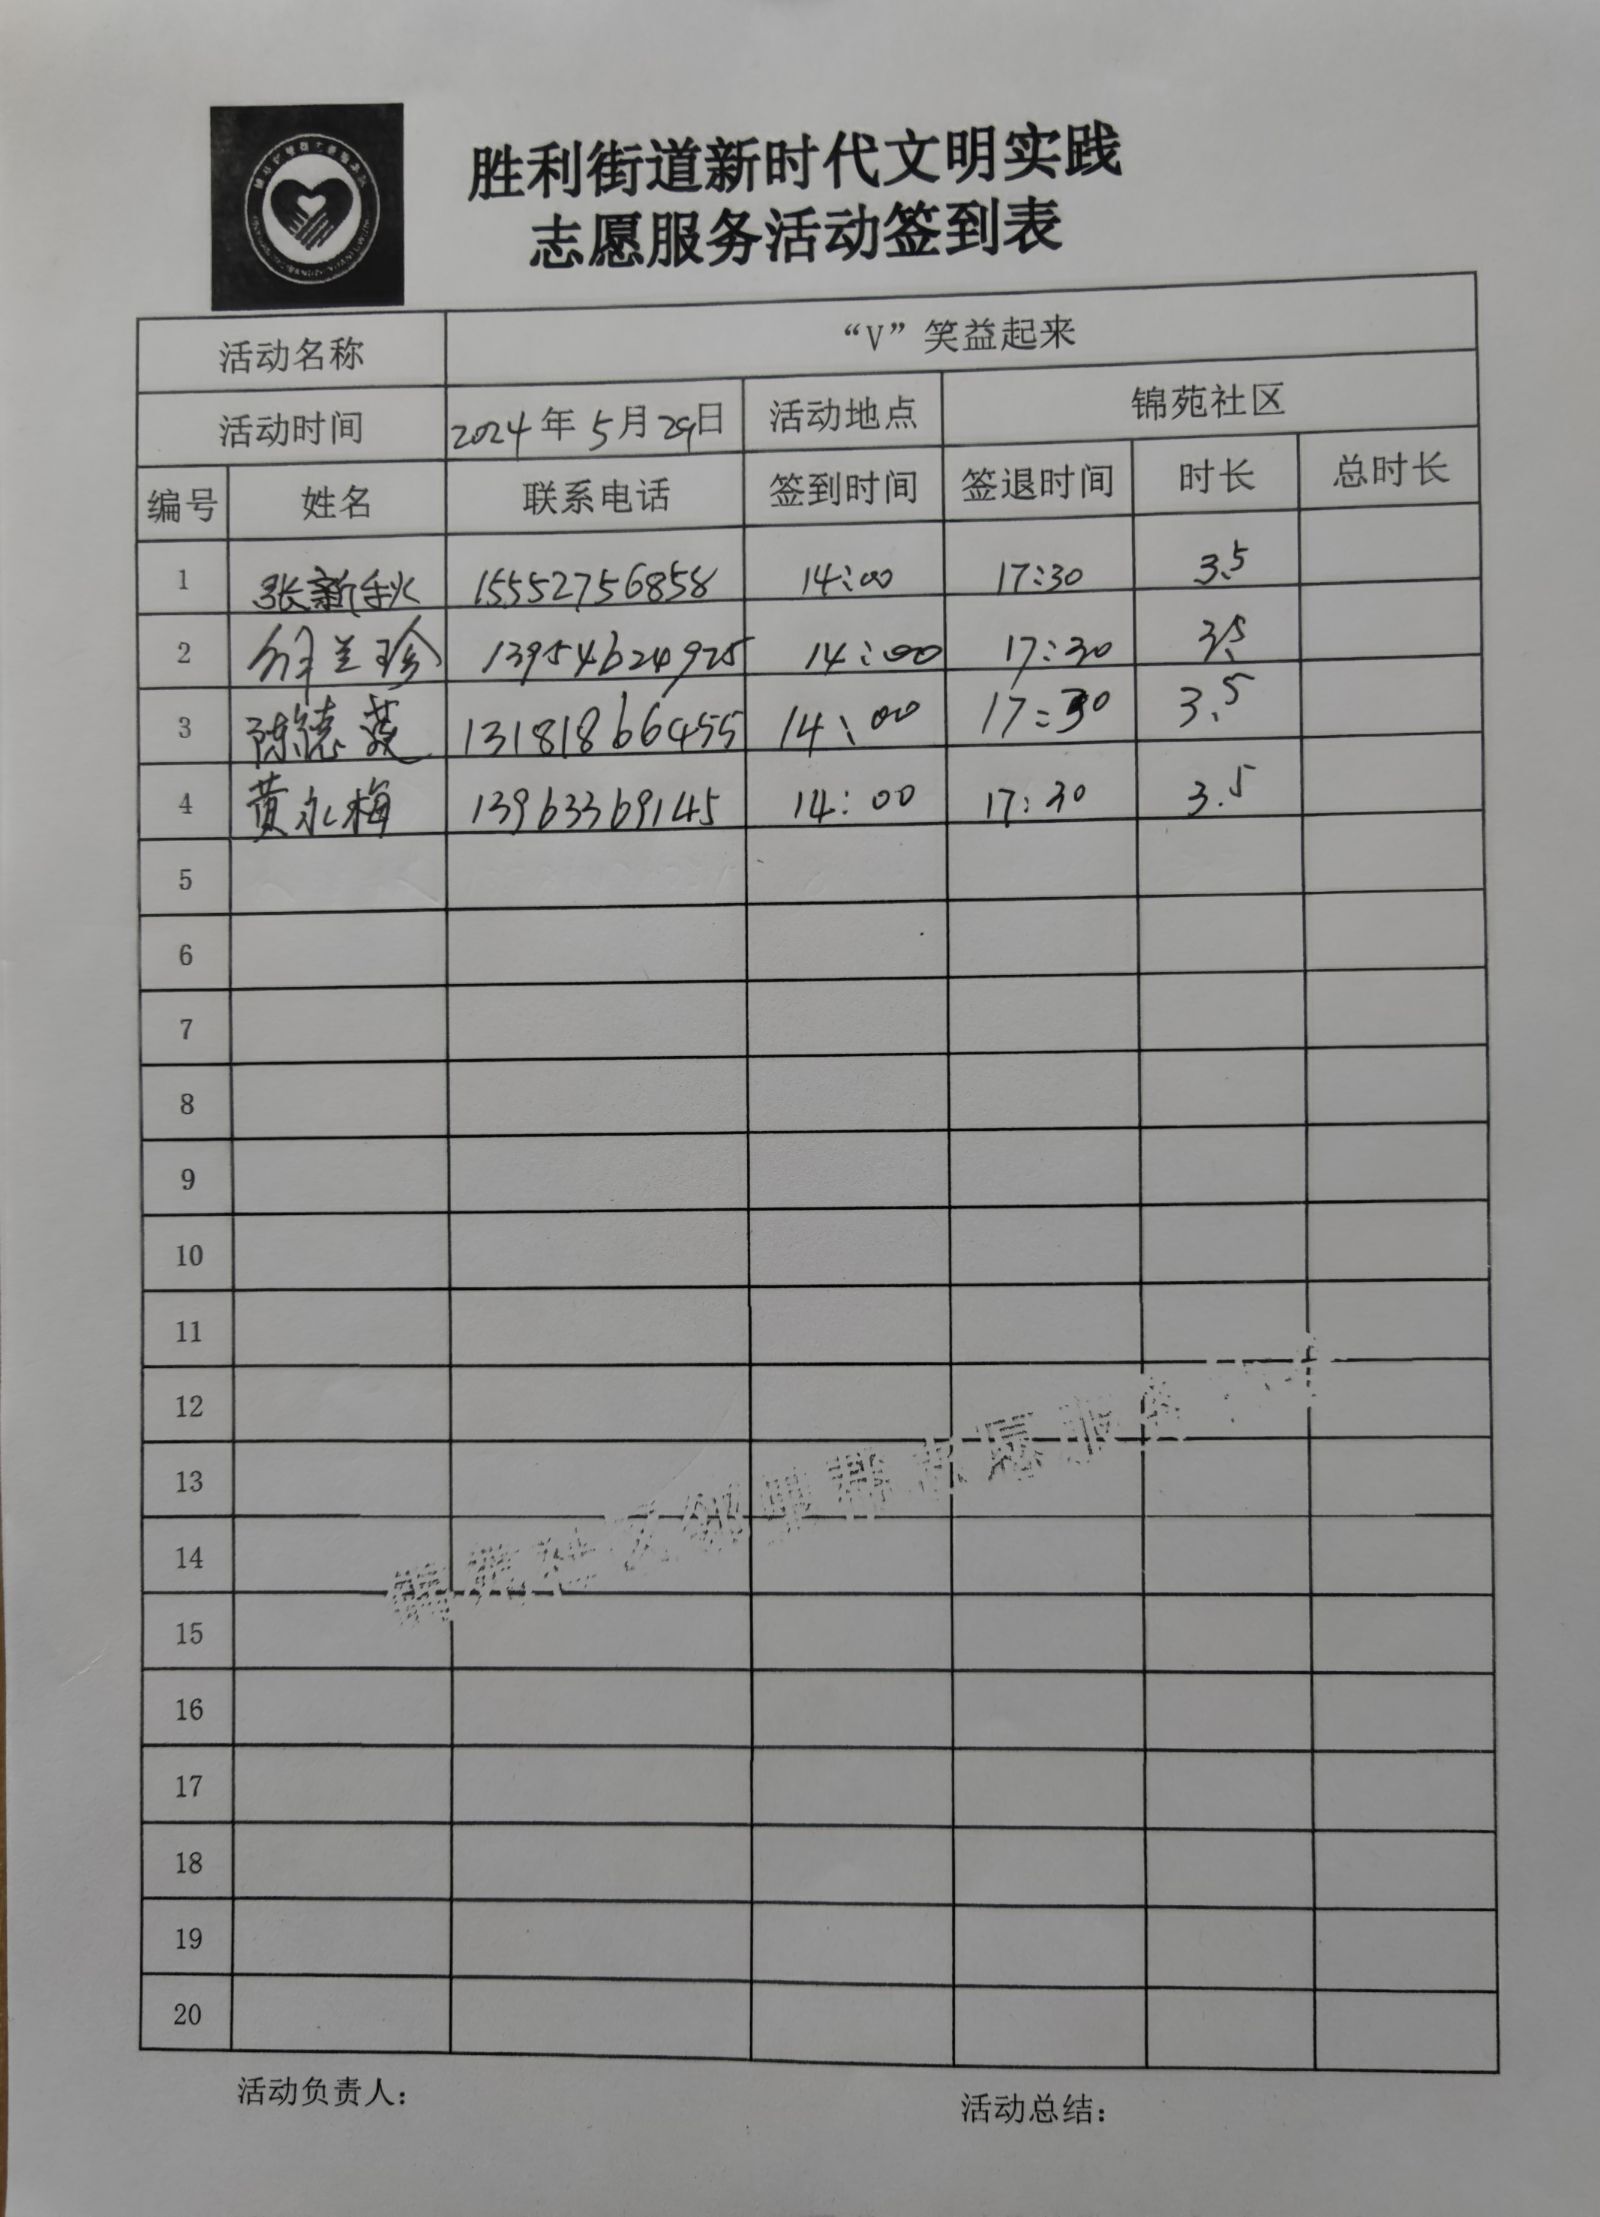 胜利街道新时代文明实践
志愿服务活动签到表
活动名称 “V”笑益起来
活动时间 2024年5月29日 活动地点 锦苑社区
编号 姓名 联系电话 签到时间 签退时间 时长 总时长
1 张新秋 15552756858 14:00 17:30 3.5
2 兰珍 13954624925 14:00 17:30 3.5
3 陈德 13181866455 14:00 17:30 3.5
4 黄永梅 13963369145 14:00 17:30 3.5
5
6
7
8
9
10
11
12
13
14
15
16
17
18
19
20
锦苑社区邻里帮志愿服务
活动负责人：
活动总结：